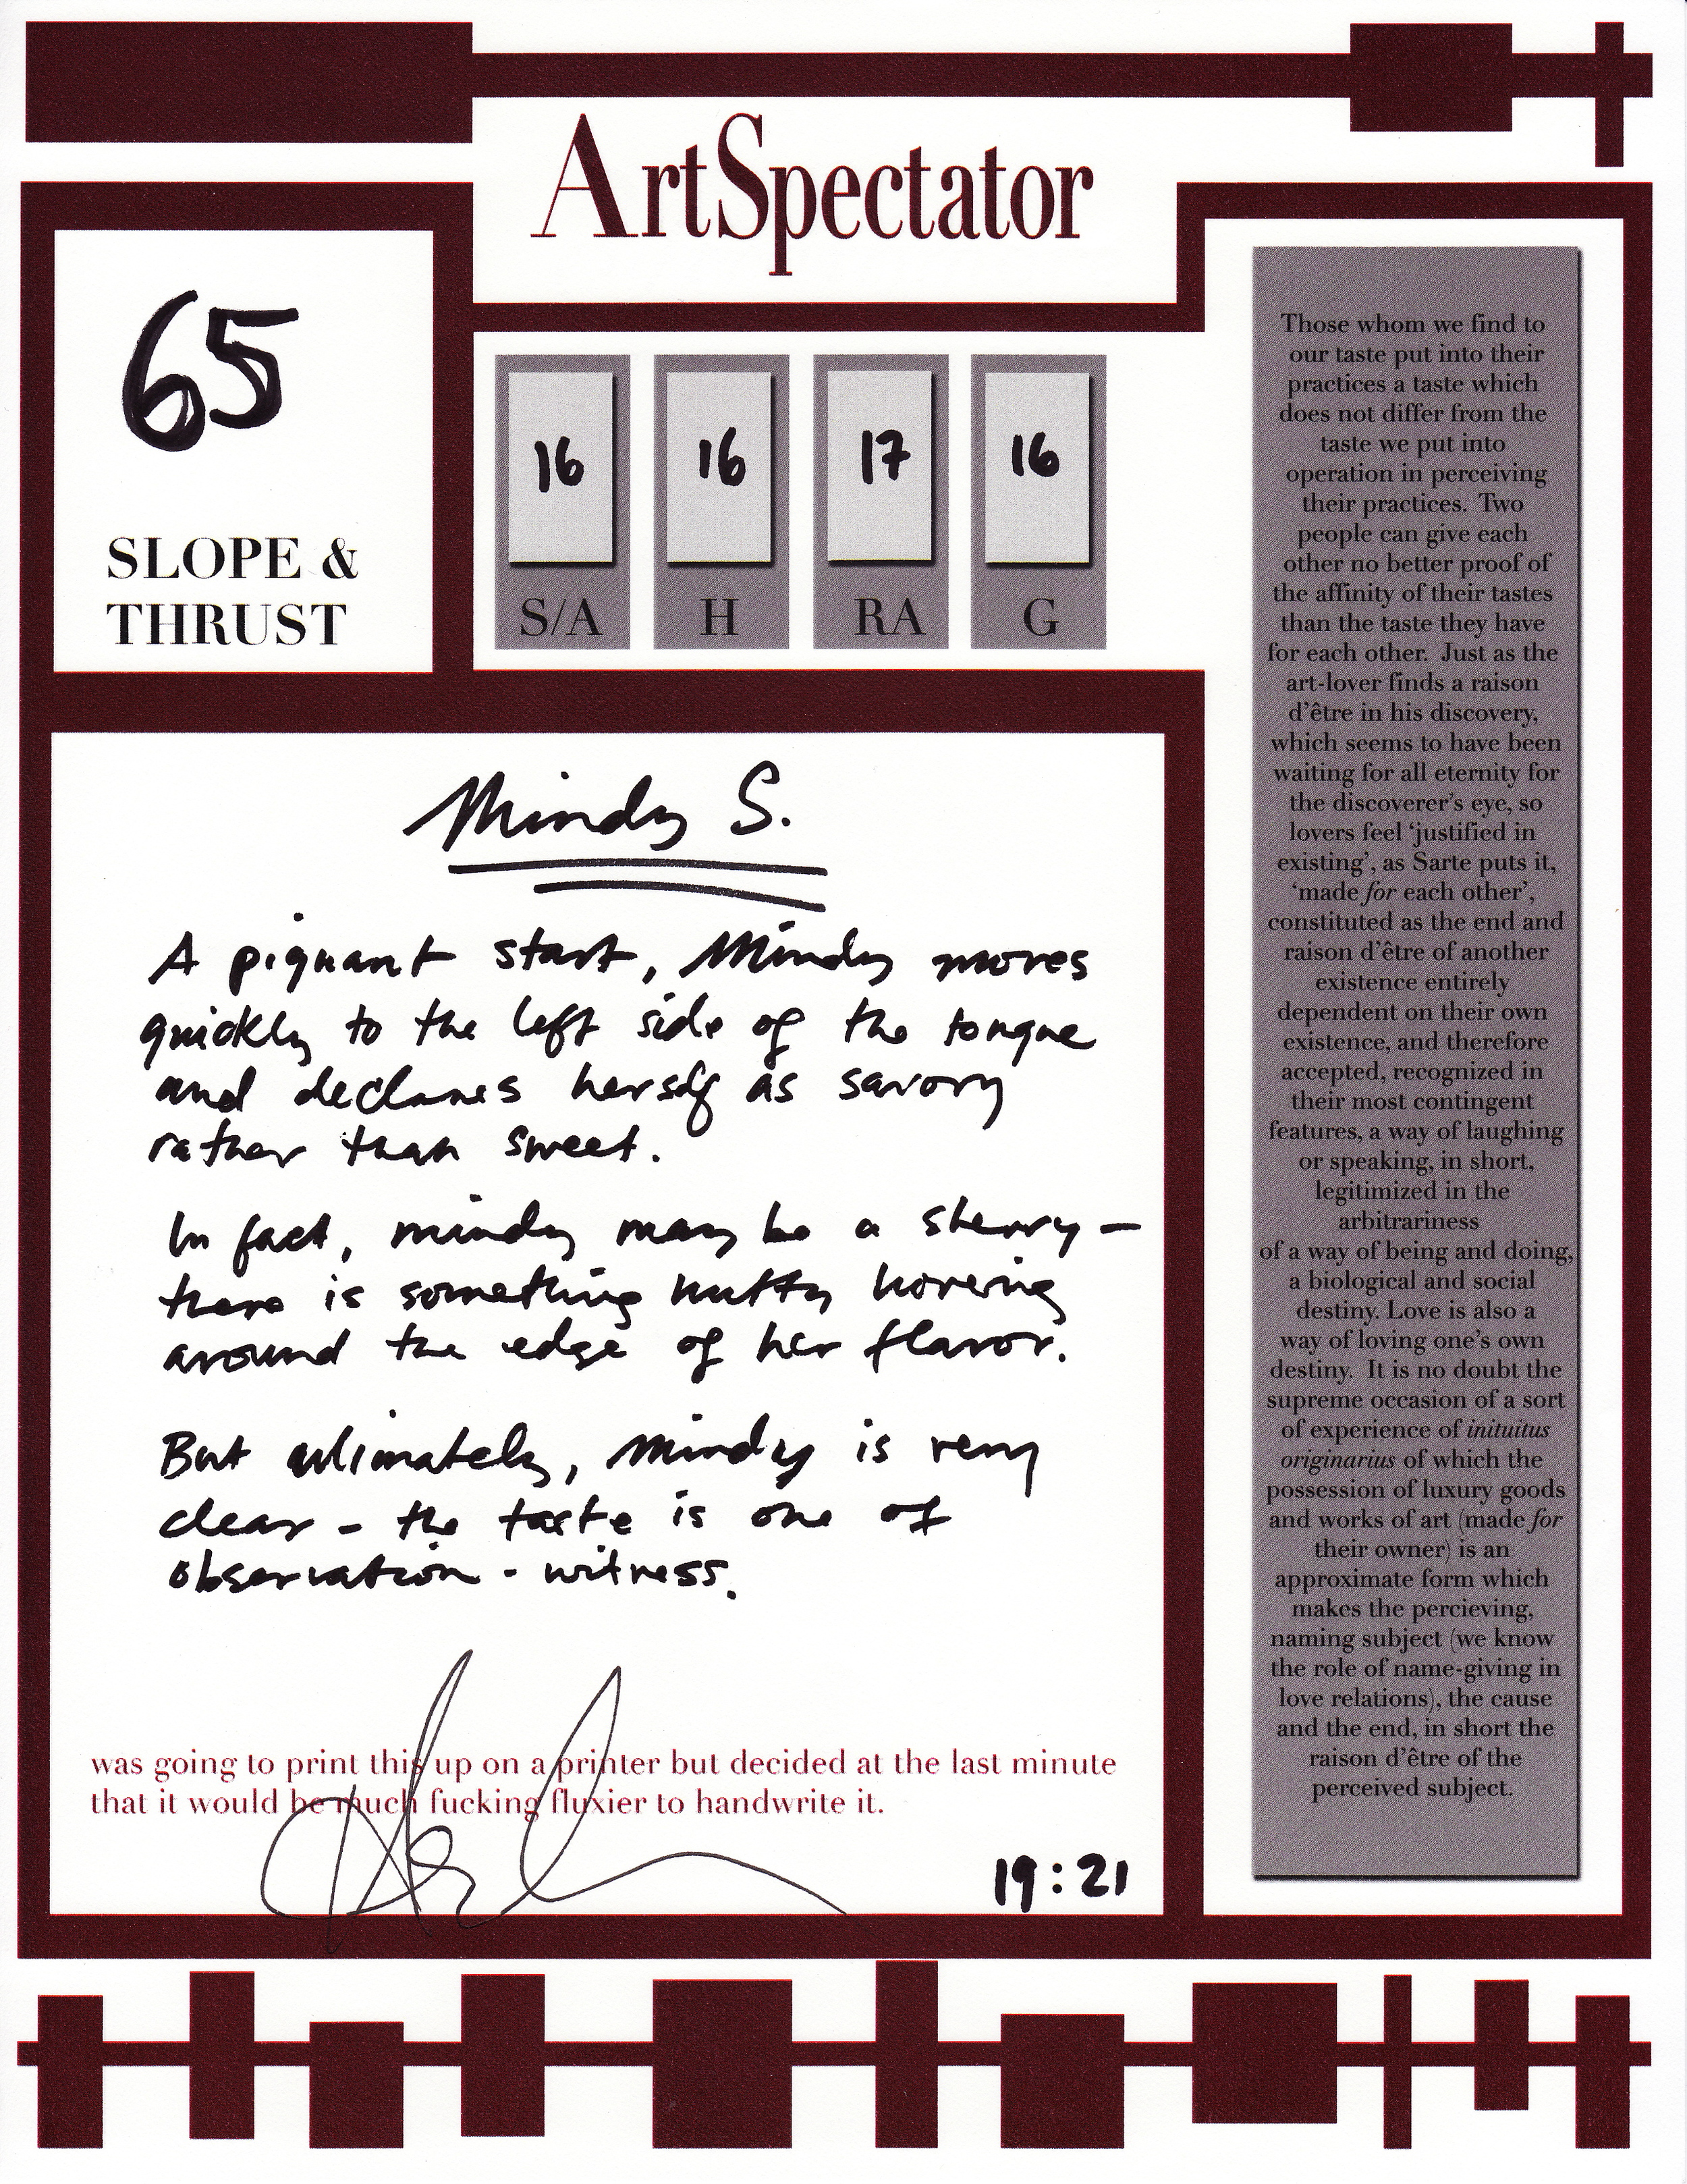 ArtSpectator
65
SLOPE &
THRUST
16
S/A
16
H
17
RA
16
G
Mindy S.
A piquant start, Mindy moves
quickly to the left side of the tongue
and declares herself as savory
rather than sweet.
In fact, mindy may be a sherry –
there is something nutty hovering
around the edge of her flavor.
But ultimately, Mindy is very
clear – the taste is one of
observation - witness.
was going to print this up on a printer but decided at the last minute
that it would be much fucking fluxier to handwrite it.
19:21
Those whom we find to
our taste put into their
practices a taste which
does not differ from the
taste we put into
operation in perceiving
their practices. Two
people can give each
other no better proof of
the affinity of their tastes
than the taste they have
for each other. Just as the
art-lover finds a raison
d'être in his discovery,
which seems to have been
waiting for all eternity for
the discoverer's eye, so
lovers feel 'justified in
existing', as Sarte puts it,
'made for each other',
constituted as the end and
raison d'être of another
existence entirely
dependent on their own
existence, and therefore
accepted, recognized in
their most contingent
features, a way of laughing
or speaking, in short,
legitimized in the
arbitrariness
of a way of being and doing,
a biological and social
destiny. Love is also a
way of loving one's own
destiny. It is no doubt the
supreme occasion of a sort
of experience of inituitus
originarius of which the
possession of luxury goods
and works of art (made for
their owner) is an
approximate form which
makes the percieving,
naming subject (we know
the role of name-giving in
love relations), the cause
and the end, in short the
raison d'être of the
perceived subject.